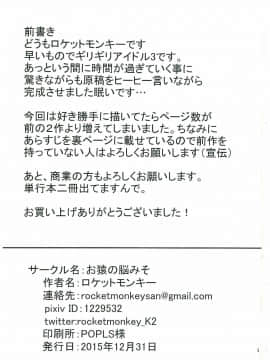 前書き
どうもロケットモンキーです
早いものでギリギリアイドル3です。
あっという間に時間が過ぎていく事に
驚きながらも原稿をヒーヒー言いながら
完成させました眠いです…
今回は好き勝手に描いてたらページ数が
前の2作より増えてしまいました。ちなみに
あらすじを裏ページに載せているので前作を
持っていない人はよろしくお願いします（宣伝）
あと、商業の方もよろしくお願いします。
単行本二冊出てますんで。
お買い上げありがとうございました！
サークル名：お猿の脳みそ
作者名：ロケットモンキー
連絡先：rocketmonkeysan@gmail.com
pixiv ID：1229532
twitter:rocketmonkey_K2
印刷所：POPLS様
発行日：2015年12月31日